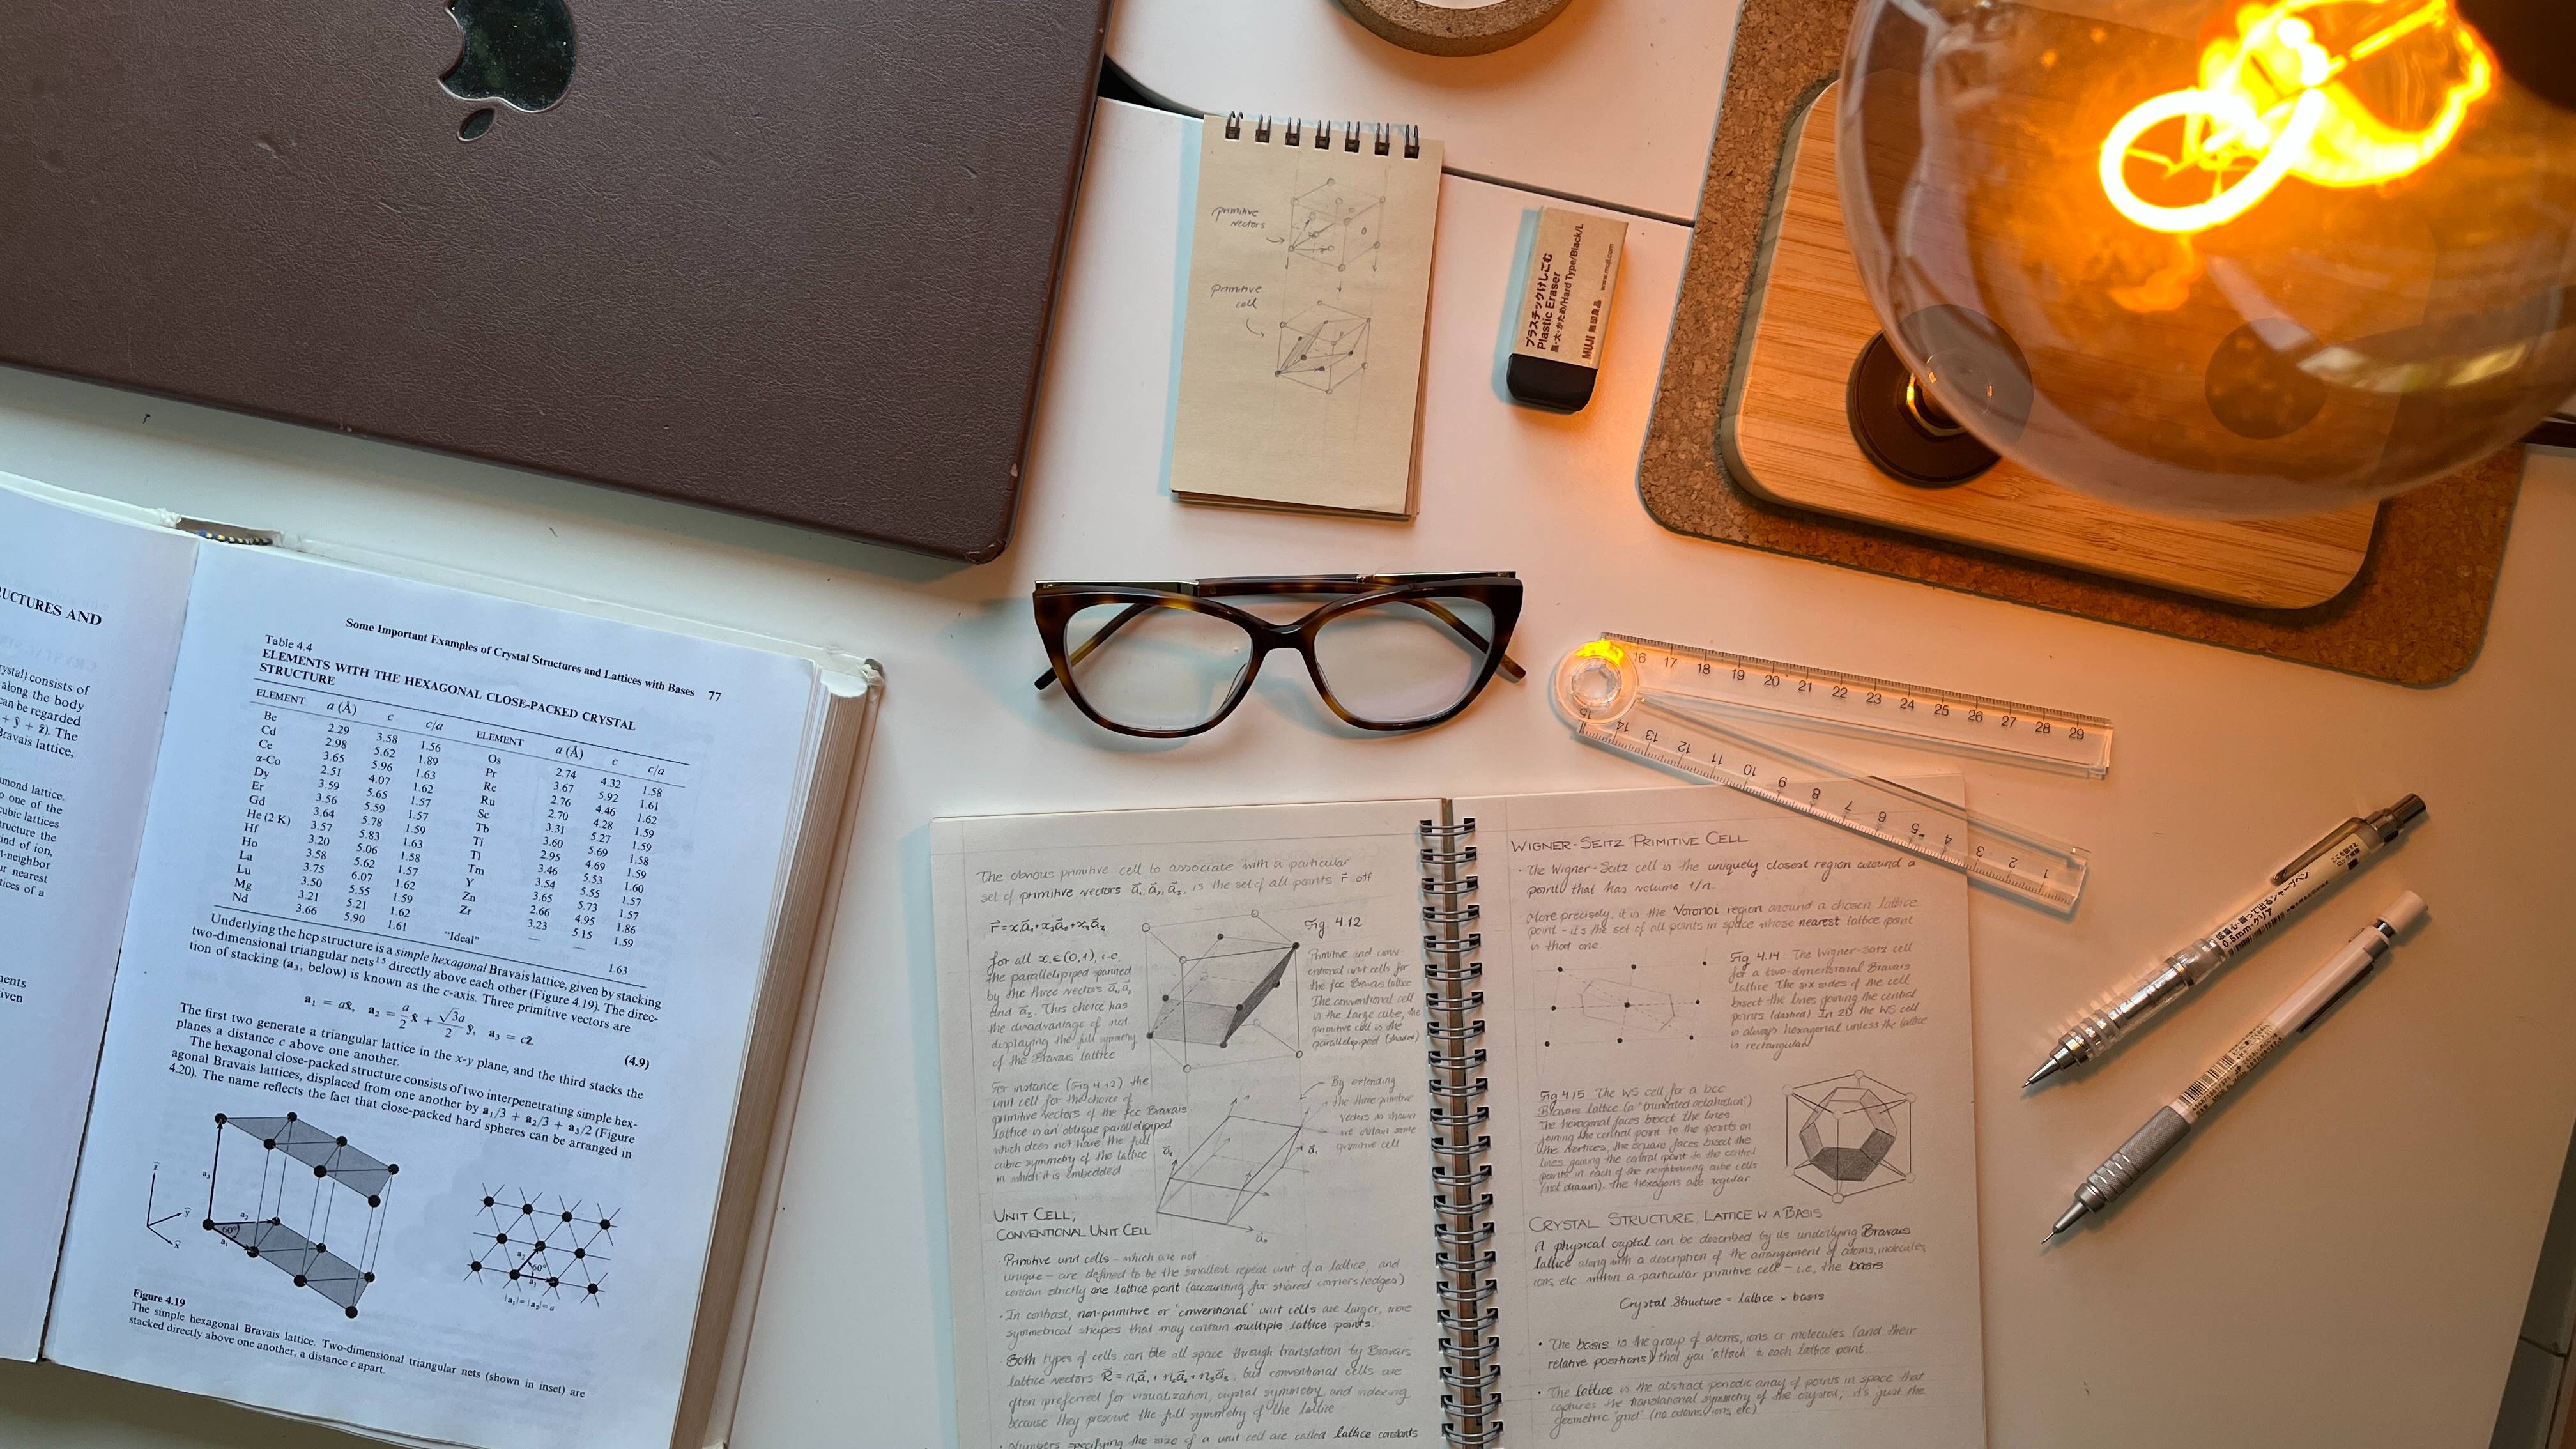 primitive
vectors
primitive
cell
プラスチックけしごむ
Plastic Eraser
黒・大・かため/Hard Type/Black/L
MUJI 無印良品
www.muji.com
RUCTURES AND
rystal) consists of
along the body
can be regarded
+ ŷ + ẑ). The
Bravais lattice,
amond lattice.
o one of the
cubic lattices
ructure the
ind of ion,
t-neighbor
ur nearest
tices of a
Some Important Examples of Crystal Structures and Lattices with Bases 77
Table 4.4
ELEMENTS WITH THE HEXAGONAL CLOSE-PACKED CRYSTAL
STRUCTURE
ELEMENT a (Å) c c/a ELEMENT a (Å) c c/a
Be 2.29 3.58 1.56 Os 2.74 4.32 1.58
Cd 2.98 5.62 1.89 Pr 3.67 5.92 1.61
Ce 3.65 5.96 1.63 Re 2.76 4.46 1.62
α-Co 2.51 4.07 1.62 Ru 2.70 4.28 1.59
Dy 3.59 5.65 1.57 Sc 3.31 5.27 1.59
Er 3.56 5.59 1.57 Tb 3.60 5.69 1.58
Gd 3.64 5.78 1.59 Ti 2.95 4.69 1.59
He (2 K) 3.57 5.83 1.63 Tl 3.46 5.53 1.60
Hf 3.20 5.06 1.58 Tm 3.54 5.55 1.57
Ho 3.58 5.62 1.57 Y 3.65 5.73 1.57
La 3.75 6.07 1.62 Zn 2.66 4.95 1.86
Lu 3.50 5.55 1.59 Zr 3.23 5.15 1.59
Mg 3.21 5.21 1.62 "Ideal" — — 1.63
Nd 3.66 5.90 1.61
Underlying the hcp structure is a simple hexagonal Bravais lattice, given by stacking
two-dimensional triangular nets¹⁵ directly above each other (Figure 4.19). The direc-
tion of stacking (a₃, below) is known as the c-axis. Three primitive vectors are
a₁ = ax̂, a₂ = a/2 x̂ + √3a/2 ŷ, a₃ = cẑ (4.9)
The first two generate a triangular lattice in the x-y plane, and the third stacks the
planes a distance c above one another.
The hexagonal close-packed structure consists of two interpenetrating simple hex-
agonal Bravais lattices, displaced from one another by a₁/3 + a₂/3 + a₃/2 (Figure
4.20). The name reflects the fact that close-packed hard spheres can be arranged in
a₃
a₂
60°
a₁
ẑ
ŷ
x̂
a₂
60°
a₁
|a₁|=|a₂|=a
Figure 4.19
The simple hexagonal Bravais lattice. Two-dimensional triangular nets (shown in inset) are
stacked directly above one another, a distance c apart.
16 17 18 19 20 21 22 23 24 25 26 27 28 29
15 14 13 12 11 10 9 8 7 6 5 4 3 2 1
The obvious primitive cell to associate with a particular
set of primitive vectors a⃗₁, a⃗₂, a⃗₃, is the set of all points r⃗ off
r⃗ = x₁a⃗₁ + x₂a⃗₂ + x₃a⃗₃
for all xᵢ∈(0,1), i.e.
the parallelipiped spanned
by the three vectors a⃗₁, a⃗₂
and a⃗₃. This choice has
the disadvantage of not
displaying the full symmetry
of the Bravais lattice
Fig 4.12
Primitive and conv-
entional unit cells for
the fcc Bravais lattice
The conventional cell
is the large cube, the
primitive cell is the
parallelipiped (shaded)
For instance (Fig 4.12) the
unit cell for the choice of
primitive vectors of the fcc Bravais
lattice is an oblique parallelipiped
which does not have the full
cubic symmetry of the lattice
in which it is embedded
By extending
the three primitive
vectors as shown
we obtain some
primitive cell
UNIT CELL;
CONVENTIONAL UNIT CELL
· Primitive unit cells – which are not
unique – are defined to be the smallest repeat unit of a lattice, and
contain strictly one lattice point (accounting for shared corners/edges)
· In contrast, non-primitive or "conventional" unit cells are larger, more
symmetrical shapes that may contain multiple lattice points.
Both types of cells can tile all space through translation by Bravais
lattice vectors R⃗ = n₁a⃗₁ + n₂a⃗₂ + n₃a⃗₃, but conventional cells are
often preferred for visualization, crystal symmetry and indexing
because they preserve the full symmetry of the lattice
· Numbers specifying the size of a unit cell are called lattice constants
WIGNER-SEITZ PRIMITIVE CELL
· The Wigner-Seitz cell is the uniquely closest region around a
point that has volume 1/n.
More precisely, it is the Voronoi region around a chosen lattice
point – it's the set of all points in space whose nearest lattice point
is that one.
Fig 4.14 The Wigner-Seitz cell
for a two-dimensional Bravais
lattice The six sides of the cell
bisect the lines joining the central
points (dashed) In 2D the WS cell
is always hexagonal unless the lattice
is rectangular
Fig 4.15 The WS cell for a bcc
Bravais lattice (a "truncated octahedron")
The hexagonal faces bisect the lines
joining the central point to the points on
the vertices, the square faces bisect the
lines joining the central point to the central
points in each of the neighbouring cube cells
(not drawn). The hexagons are regular
CRYSTAL STRUCTURE, LATTICE W A BASIS
A physical crystal can be described by its underlying Bravais
lattice along with a description of the arrangement of atoms, molecules,
ions, etc within a particular primitive cell – i.e, the basis
Crystal Structure = lattice × basis
· The basis is the group of atoms, ions or molecules (and their
relative positions) that you "attach" to each lattice point.
· The lattice is the abstract periodic array of points in space that
captures the translational symmetry of the crystal, it's just the
geometric "grid" (no atoms, ions, etc)
0.5mm・クリア